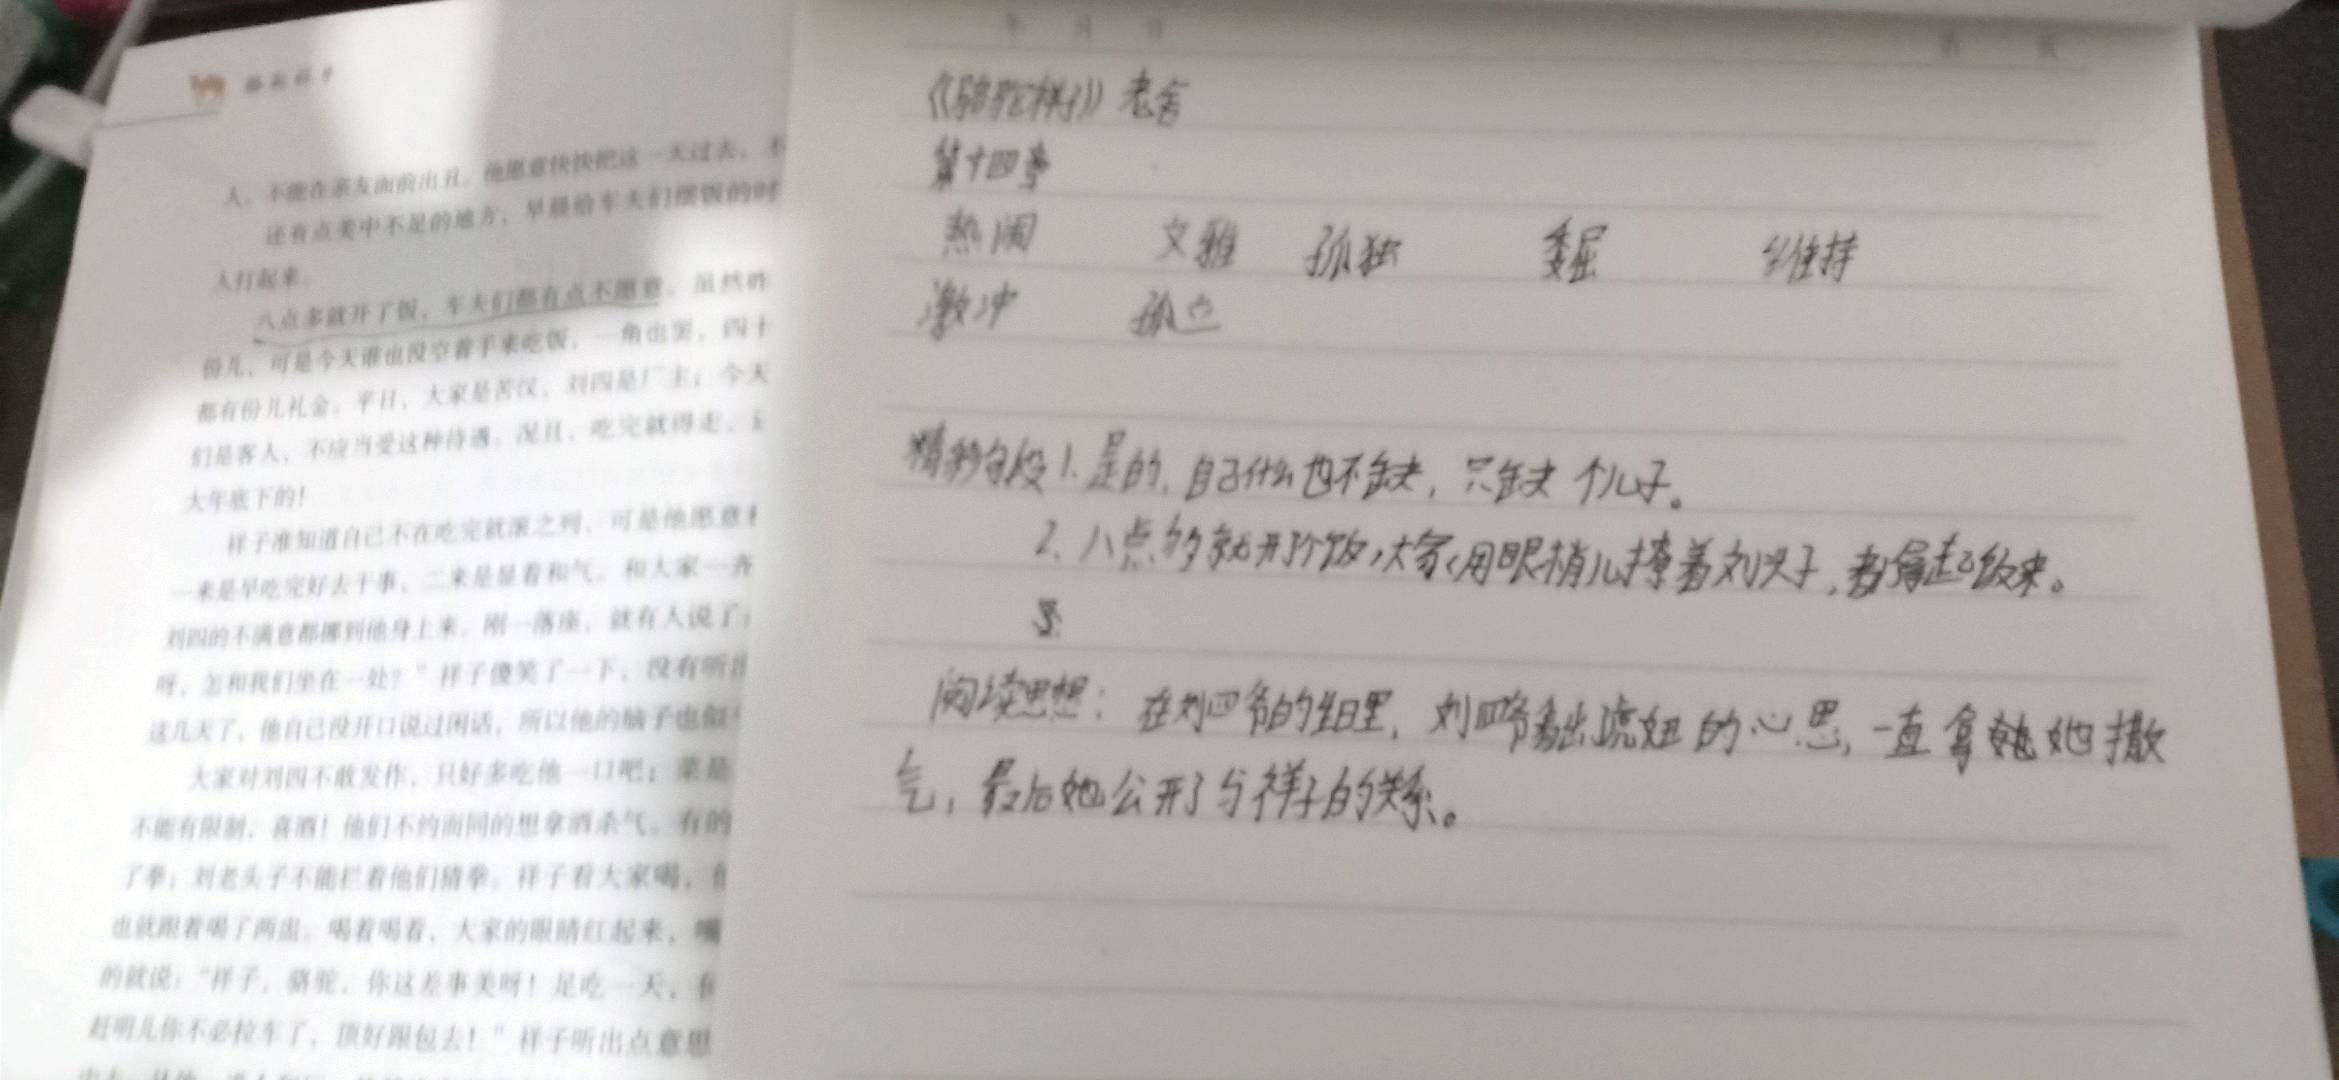 骆驼祥子
人，不能在亲友面前出丑。他愿意快快把这一天过去，不
还有点美中不足的地方，早晨给车夫们摆饭的时
人打起来。
八点多就开了饭，车夫们都有点不愿意。虽然昨
份儿，可是今天谁也没空着手来吃饭，一角也罢，四十
都有份儿礼金。平日，大家是苦汉，刘四是厂主；今天
们是客人，不应当受这种待遇。况且，吃完就得走，
大年底下的！
祥子准知道自己不在吃完就滚之列，可是他愿意
一来是早吃完好去干事，二来是显着和气。和大家一齐
刘四的不满意都挪到他身上来。刚一落座，就有人说了：
呀，怎和我们坐在一处？”祥子傻笑了一下，没有听
这几天了，他自己没开口说过闲话，所以他的脑子也似
大家对刘四不敢发作，只好多吃他一口吧；菜是
不能有限制，喜酒！他们不约而同的想拿酒杀气。有的
了拳；刘老头子不能拦着他们猜拳。祥子看大家喝，
也就跟着喝了两盅。喝着喝着，大家的眼睛红起来，嘴
的就说：“祥子，骆驼，你这差事美呀！足吃一天，
赶明儿你不必拉车了，顶好跟包去！”祥子听出点意思
年 月 日
《骆驼祥子》 老舍
第十四章
热闹 文雅 孤独 委屈 维持
激冲 孤立
精彩句段 1. 是的，自己什么也不缺，只缺个儿子。
2. 八点多就开了饭，大家用眼梢儿撩着刘头子，都端起饭来。
阅读思想：在刘四爷的生日里，刘四爷看出虎妞的心思，一直拿她撒
气，最后她公开了与祥子的关系。